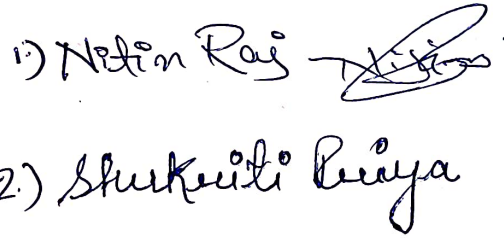 1.) Nitin Raj Nitin
2.) Shukriti Priya